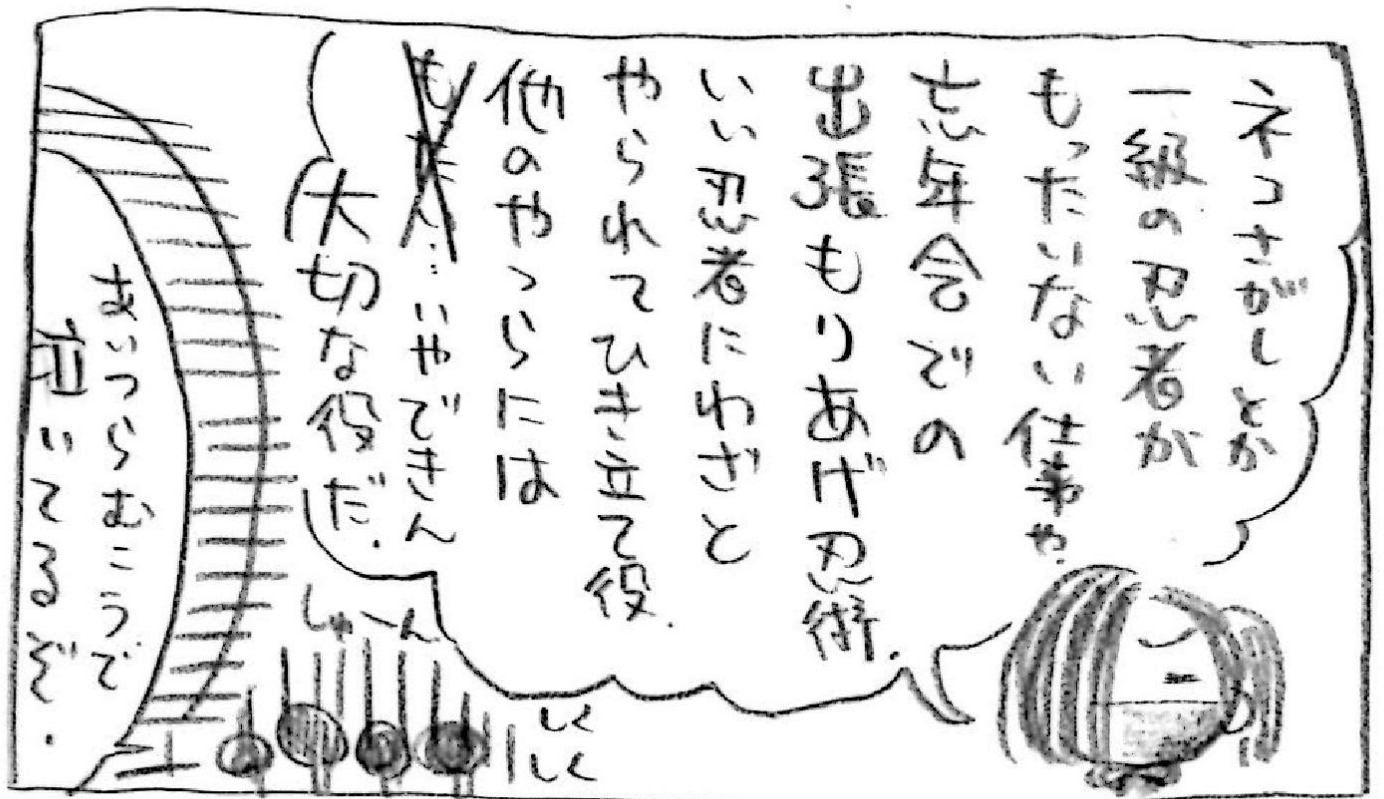 ネコさがしとか
一級の忍者が
もったいない仕事や
忘年会での
出張もりあげ忍術.
いい忍者にわざと
やられてひき立て役.
他のやつらには
いやできん
大切な役だ.
しゅーん
しく
しく
あいつらむこうで
泣いてるぞ.